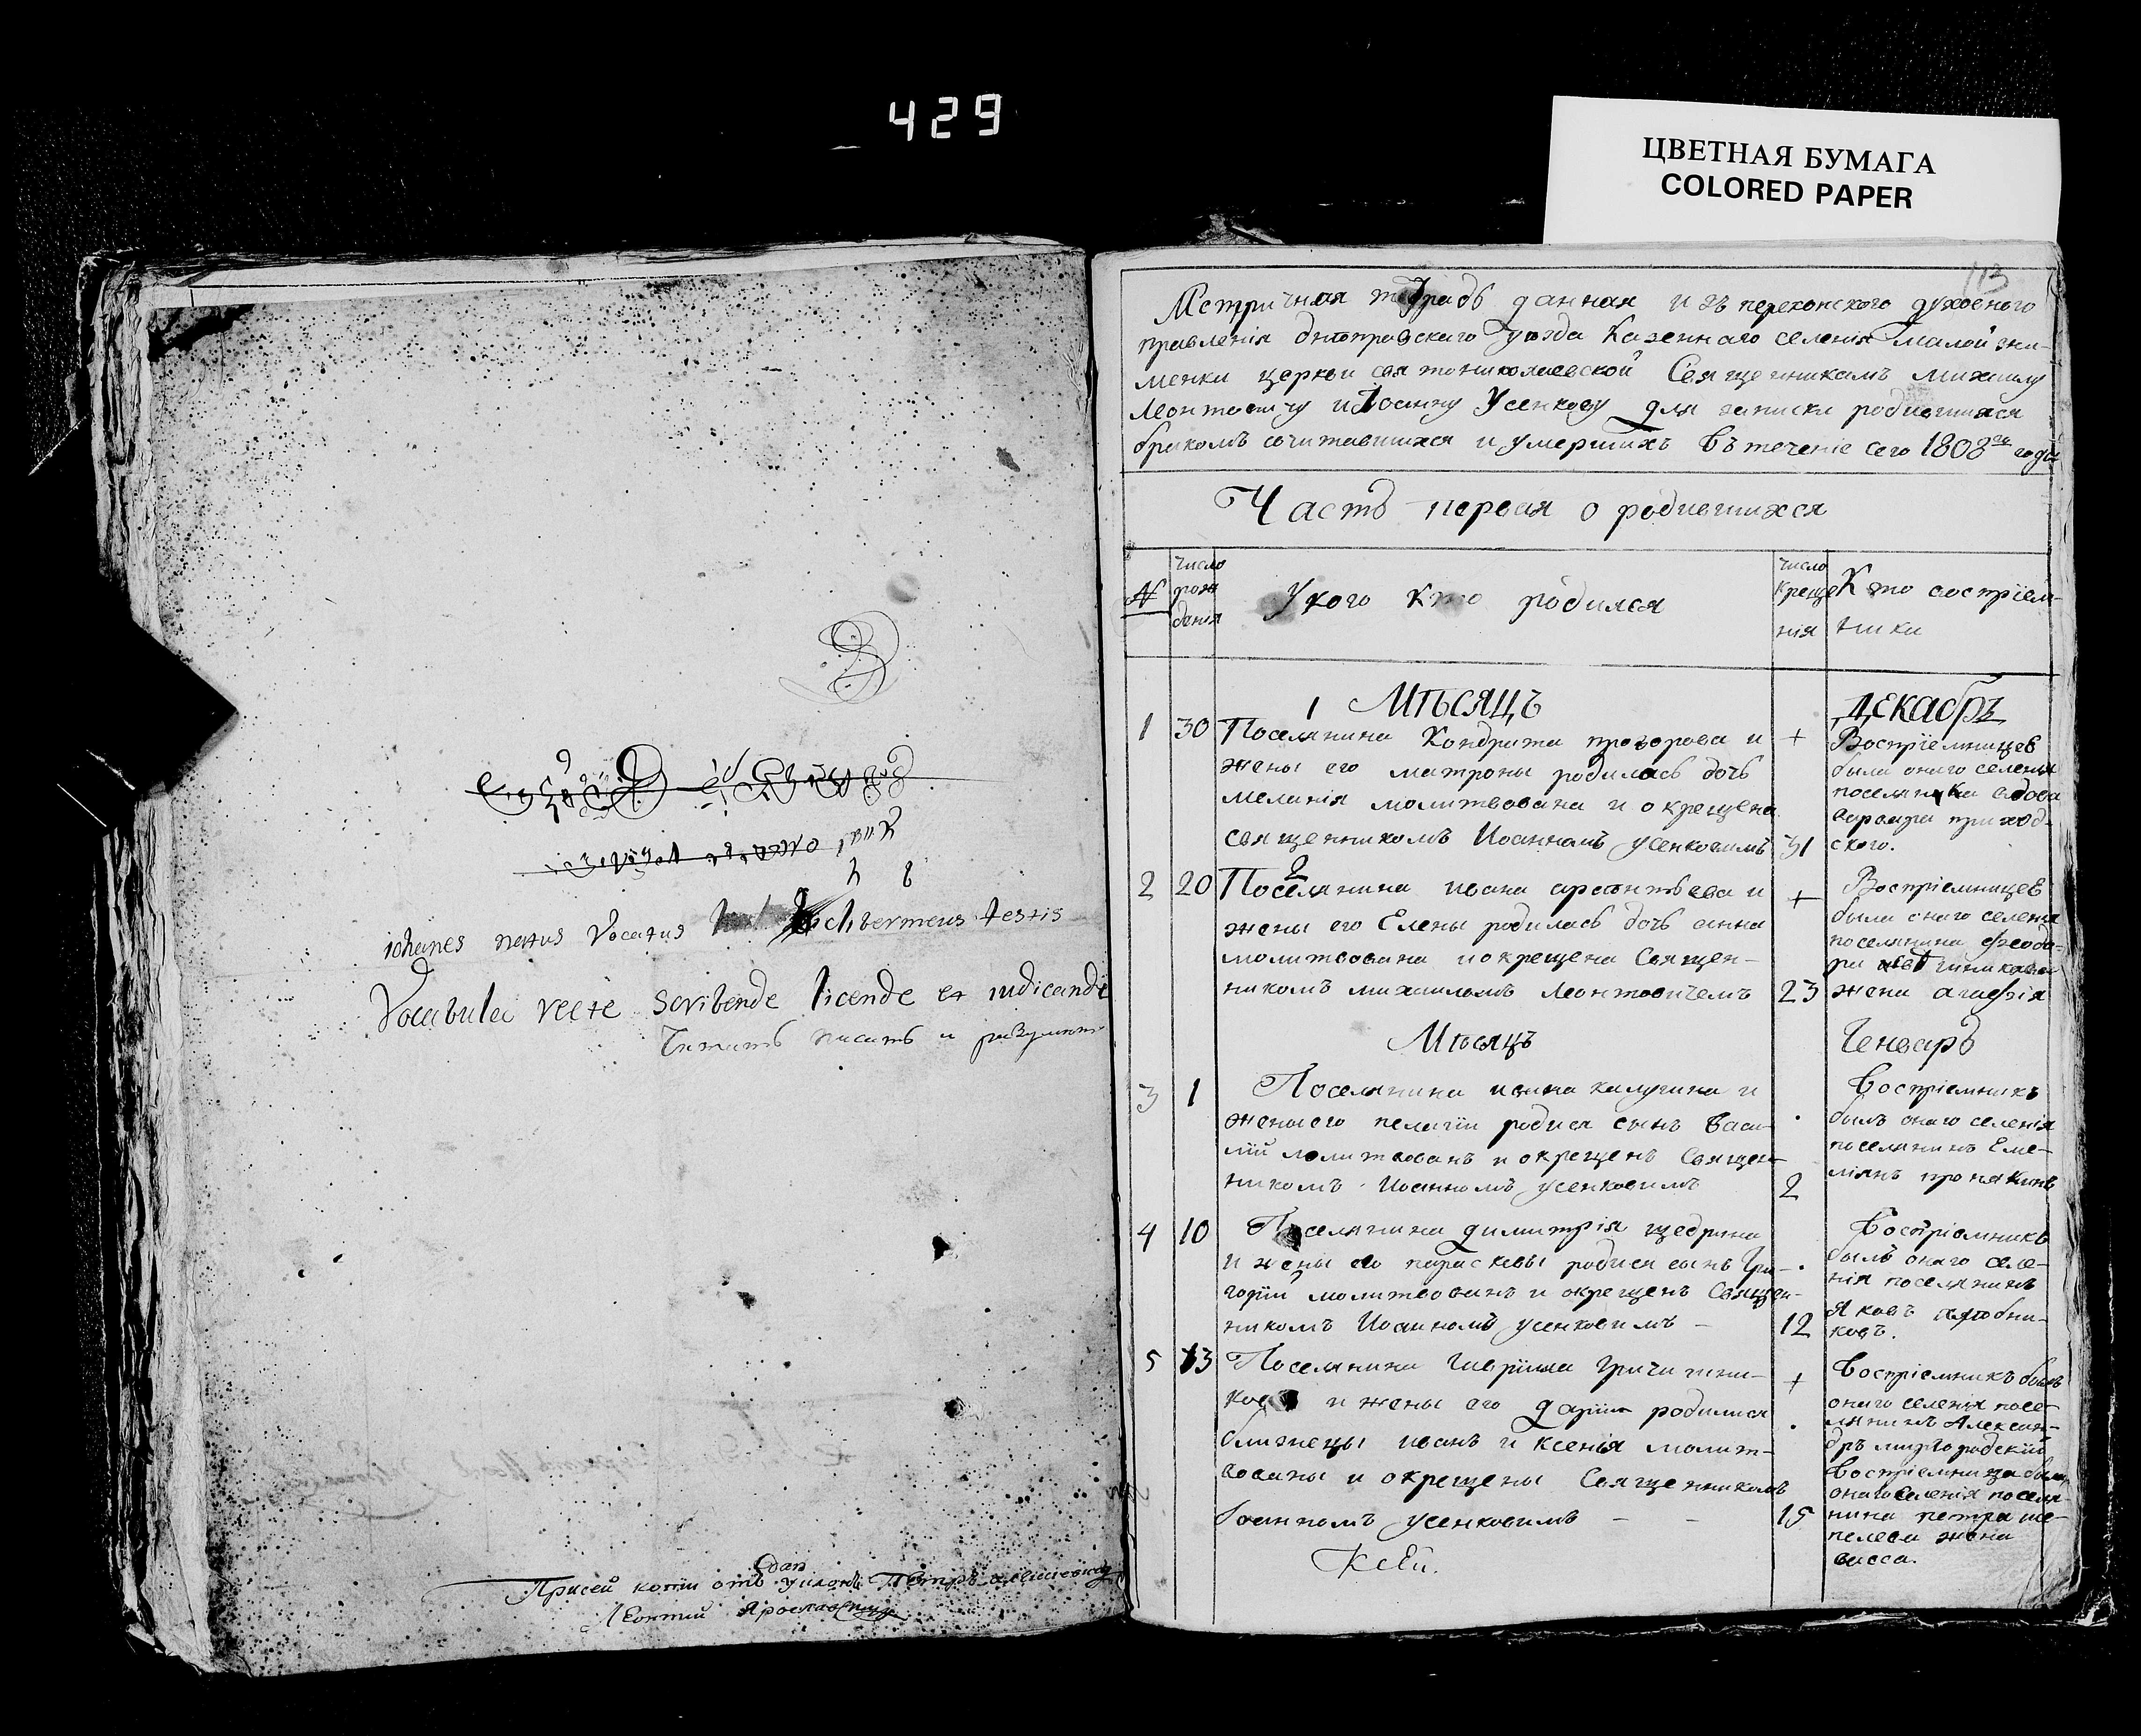 429
ЦВЕТНАЯ БУМАГА
COLORED PAPER
iohanes natus Vocatus testis
Vocabula recte Scribende licende et iudicande
Читать писать и разумѣть
Присей копіи отъ
Леонтий Ярославскій
113
Метричная тетрадь данная изъ перекопского духовного
правленія днѣпровскаго уѣзда Казеннаго селенія малой зна-
менки церкви святониколаевской Священникамъ михаилу
Леонтовичу и Іоанну Усенкову для записки родившихся
бракомъ сочитавшихся и умершихъ въ теченіе сего 1808го года
Часть первая о родившихся
N
число рож дения
У кого кто родился
число креще нія
Кто воспріем- ники
1 Мѣсяцъ
Декабръ
1 30 Поселянина Кондрата прозорова и
жены его матроны родилась дочь
меланія молитвована и окрещена
священникомъ Иоанномъ усенковимъ 31
+
Воспріемницею
была онаго селенія
поселянка вдова
варвара приход-
ского.
2
2 20 Поселянина ивана арефитьева и
жены его Елены родилась дочь анна
молитвована и окрещена Священ-
никомъ михаиломъ Леонтовичемъ 23
+
Воспріемницею
была онаго селенія
поселянина феодо-
ра
жена агафія
Мѣсяцъ
Генваръ
3 1 Поселянина ивана калугина и
жены его пелагіи родися сынъ Васи-
лій молитвованъ и окрещенъ Священ-
никомъ Иоанномъ усенковимъ 2
Воспріемникъ
былъ онаго селенія
поселянинъ Еме-
ліянъ пронякинъ
4 10 Поселянина димитрія щедрина
и жены его парасковы родися сынъ Гри-
горій молитвованъ и окрещенъ Священ-
никомъ Иоанномъ усенковимъ – 12
Воспріемникъ
былъ онаго селе-
нія поселянинъ
Яковъ
ковъ.
5 13 Поселянина Гавріила
и жены его дарии родилися
близнецы иванъ и ксенія молит-
вованы и окрещены Священникомъ
Іоанномъ усенковимъ – – 15
+
Воспріемникъ былъ
онаго селенія посе-
лянинъ Алексан-
дръ миргородскій
Воспріемница была
онаго селенія поселя-
нина петра ше-
пелева жена
васса.
Ксей.